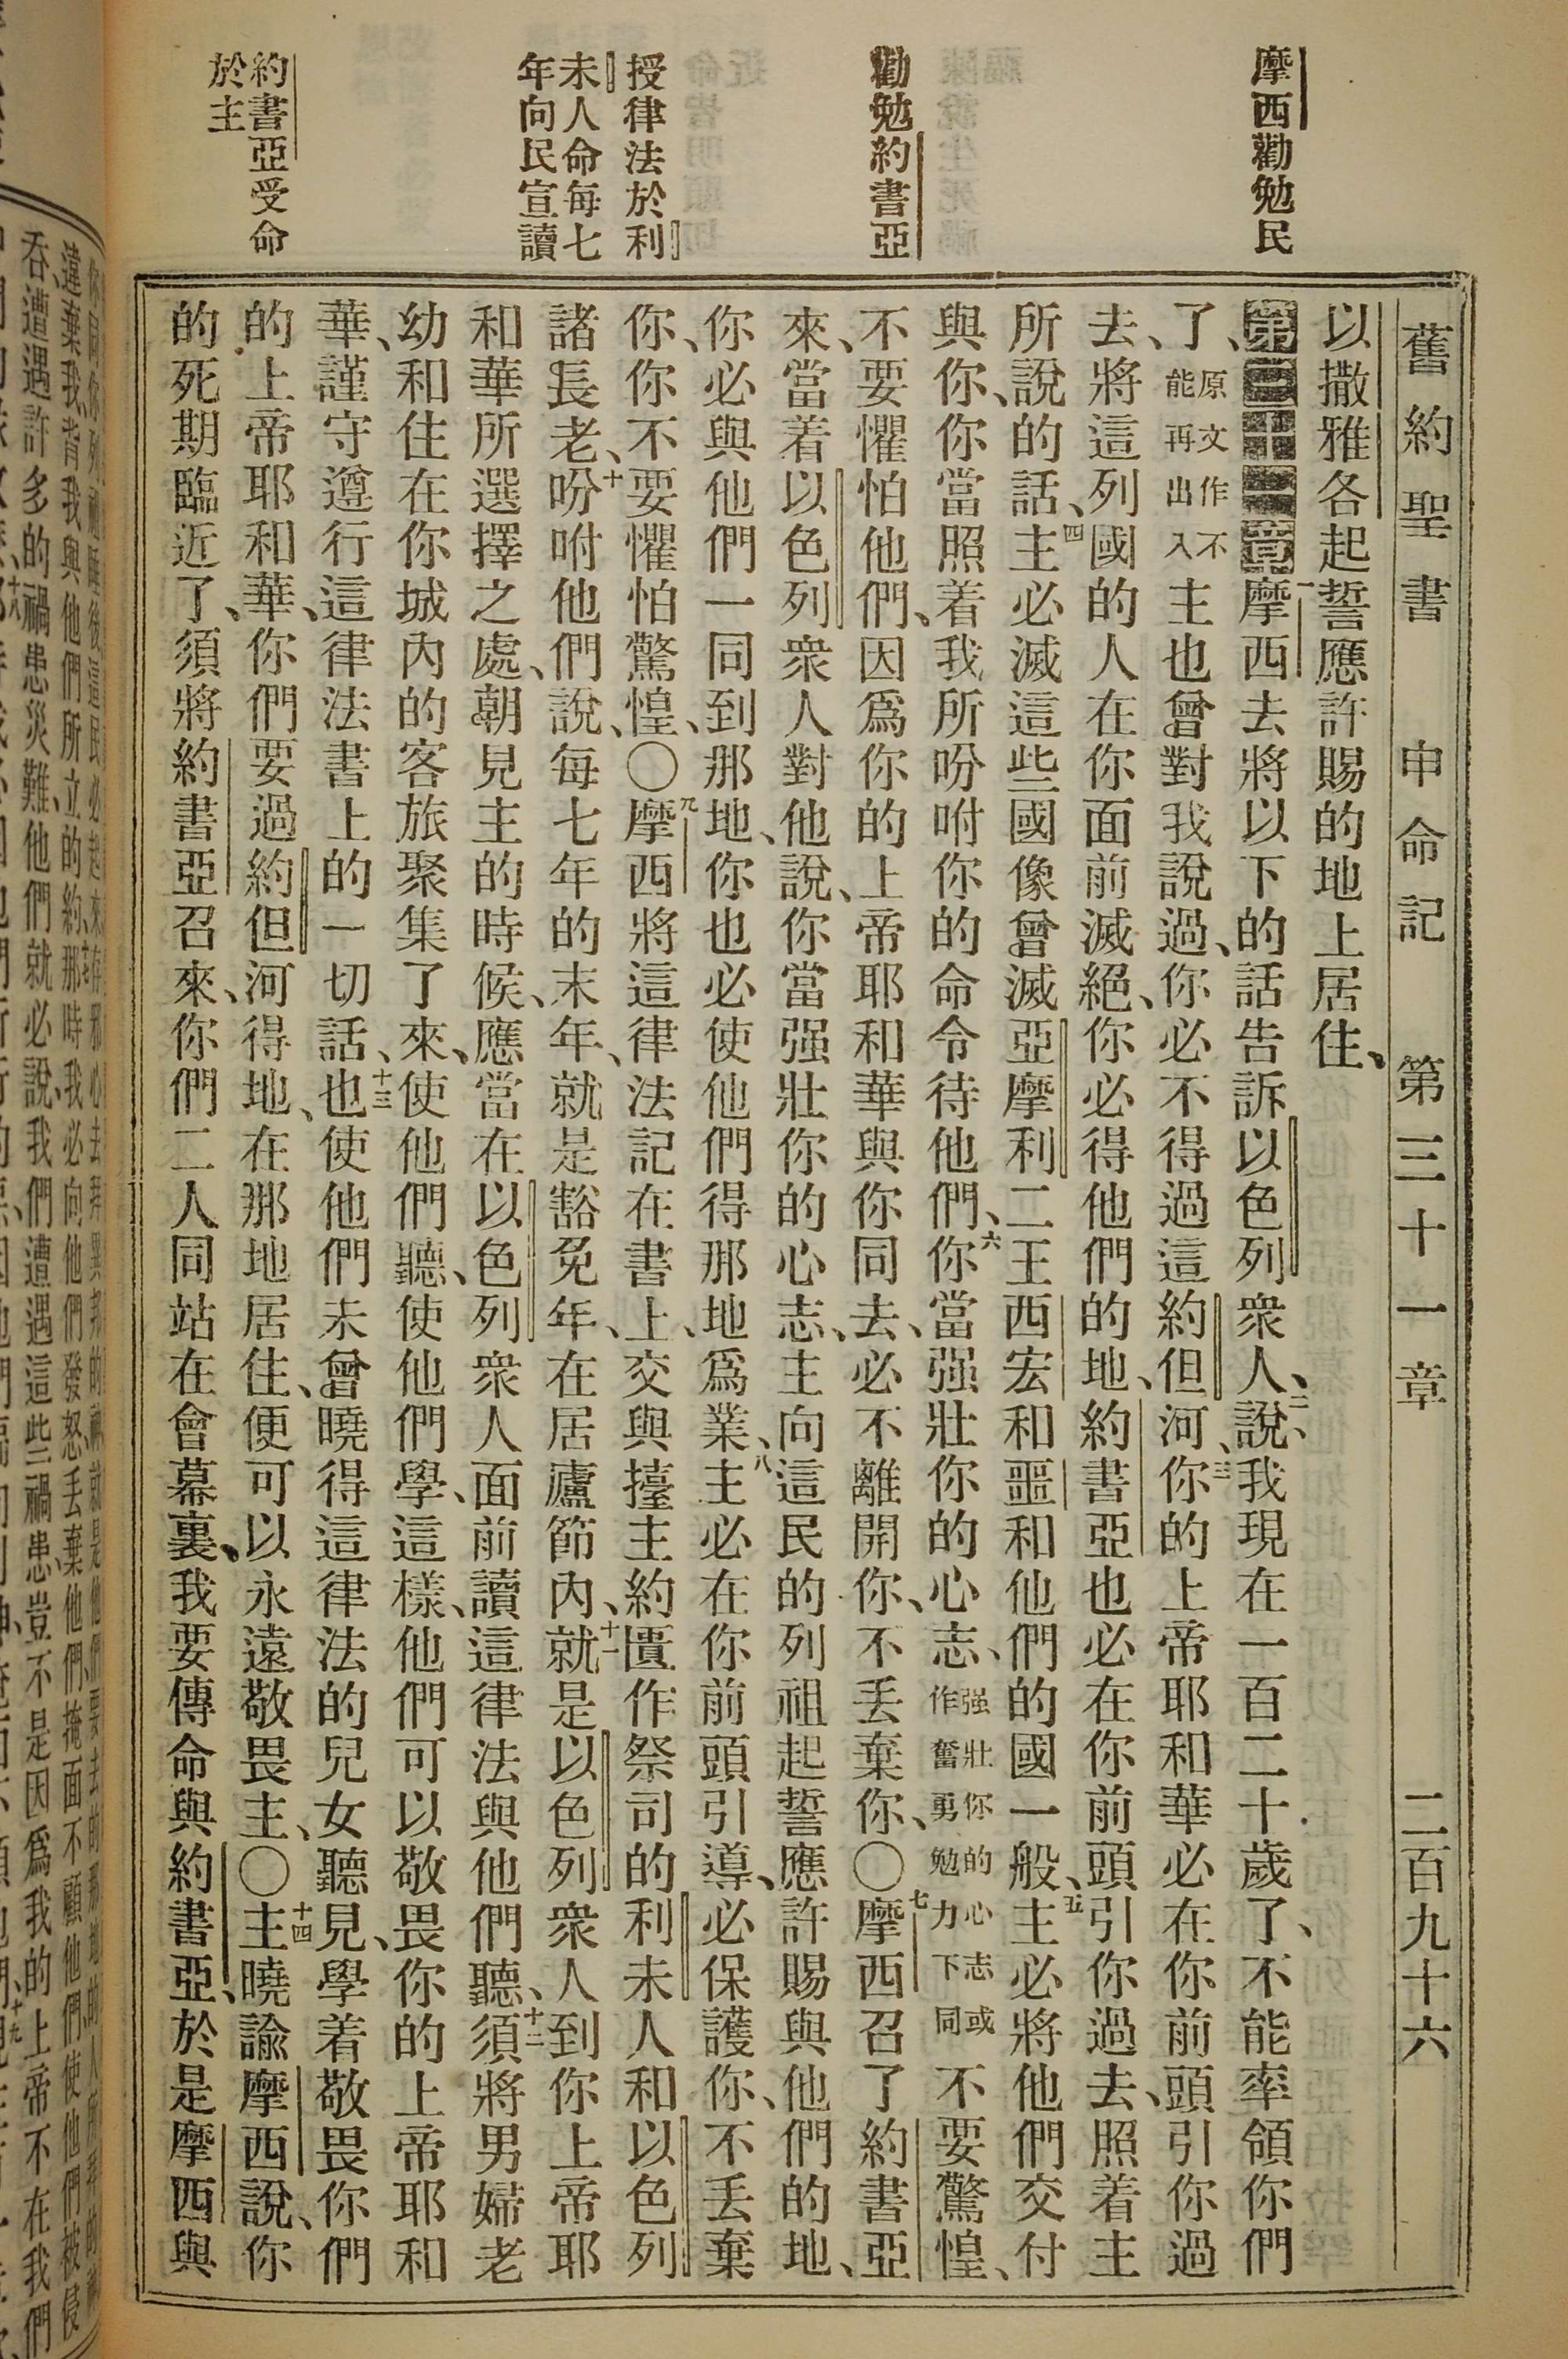 舊約聖書 申命記 第三十一章 二百九十六
摩西勸勉民
勸勉約書亞
授律法於利
未人命每七
年向民宣讀
約書亞受命
於主
以撒雅各起誓應許賜的地上居住、
第三十一章 一摩西去將以下的話告訴以色列衆人、二說、我現在一百二十歲了、不能率領你們
了、原文作不能再出入主也曾對我說過、你必不得過這約但河、三你的上帝耶和華必在你前頭引你過
去、將這列國的人在你面前滅絕、你必得他們的地、約書亞也必在你前頭引你過去、照着主
所說的話、四主必滅這些國像曾滅亞摩利二王西宏和噩和他們的國一般、五主必將他們交付
與你、你當照着我所吩咐你的命令待他們、六你當强壯你的心志、强壯你的心志或作奮勇勉力下同不要驚惶、
不要懼怕他們、因爲你的上帝耶和華與你同去、必不離開你、不丟棄你、〇七摩西召了約書亞
來、當着以色列衆人對他說、你當强壯你的心志、主向這民的列祖起誓應許賜與他們的地、
你必與他們一同到那地、你也必使他們得那地爲業、八主必在你前頭引導、必保護你、不丟棄
你、你不要懼怕驚惶、〇九摩西將這律法記在書上、交與擡主約匱作祭司的利未人和以色列
諸長老、十吩咐他們說、每七年的末年、就是豁免年、在居廬節內、十一就是以色列衆人到你上帝耶
和華所選擇之處、朝見主的時候、應當在以色列衆人面前讀這律法與他們聽、十二須將男婦老
幼和住在你城內的客旅聚集了來、使他們聽、使他們學、這樣、他們可以敬畏你的上帝耶和
華、謹守遵行這律法書上的一切話、十三也使他們未曾曉得這律法的兒女聽見、學着敬畏你們
的上帝耶和華、你們要過約但河得地、在那地居住、便可以永遠敬畏主、〇十四主曉諭摩西說、你
的死期臨近了、須將約書亞召來、你們二人同站在會幕裏、我要傳命與約書亞、於是摩西與